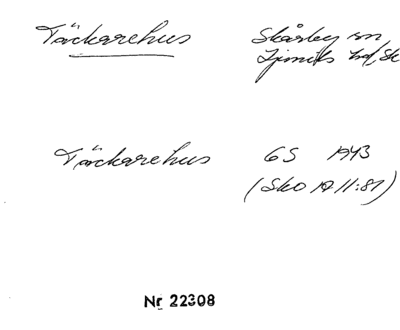 Täckarehus
Skårby sn
Ljunits hd, Sk
Täckarehus GS 1943
(Sko 19 11:81)
Nr 22308